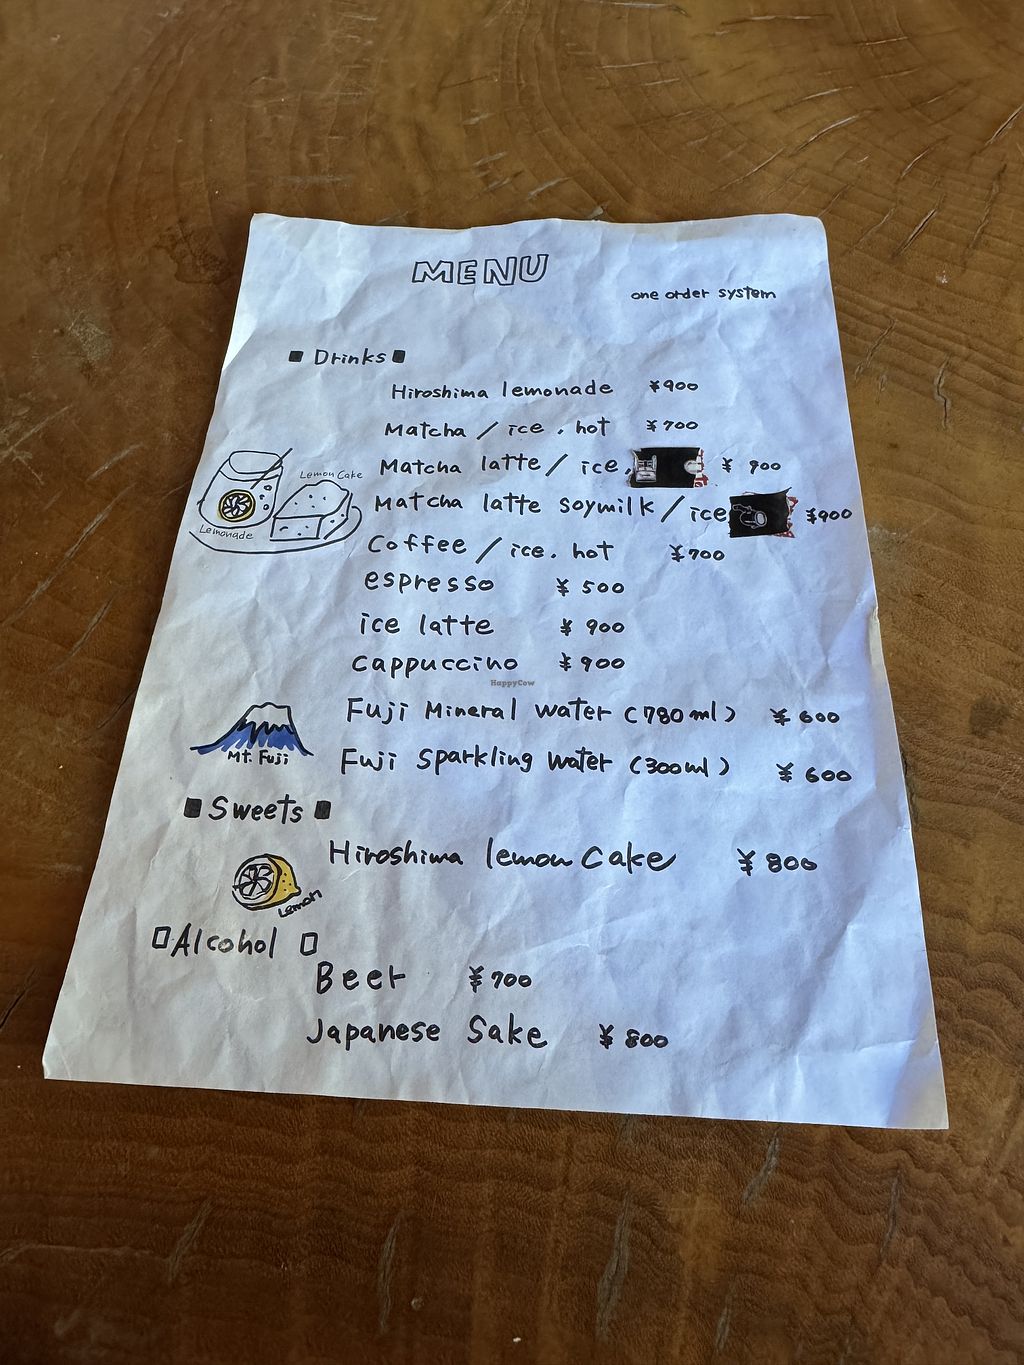 MENU
one order system
■ Drinks ■
Hiroshima lemonade ¥900
Matcha / ice . hot ¥700
Matcha latte / ice. ¥ 900
Matcha latte soymilk / ice ¥900
Lemon Cake
Lemonade
Coffee / ice. hot ¥700
espresso ¥ 500
ice latte ¥ 900
cappuccino ¥900
HappyCow
Fuji Mineral water (780ml) ¥ 600
Mt. Fuji
Fuji Sparkling water (300ml) ¥ 600
■ Sweets ■
Hiroshima lemon Cake ¥ 800
Lemon
□ Alcohol □
Beer ¥700
Japanese Sake ¥ 800